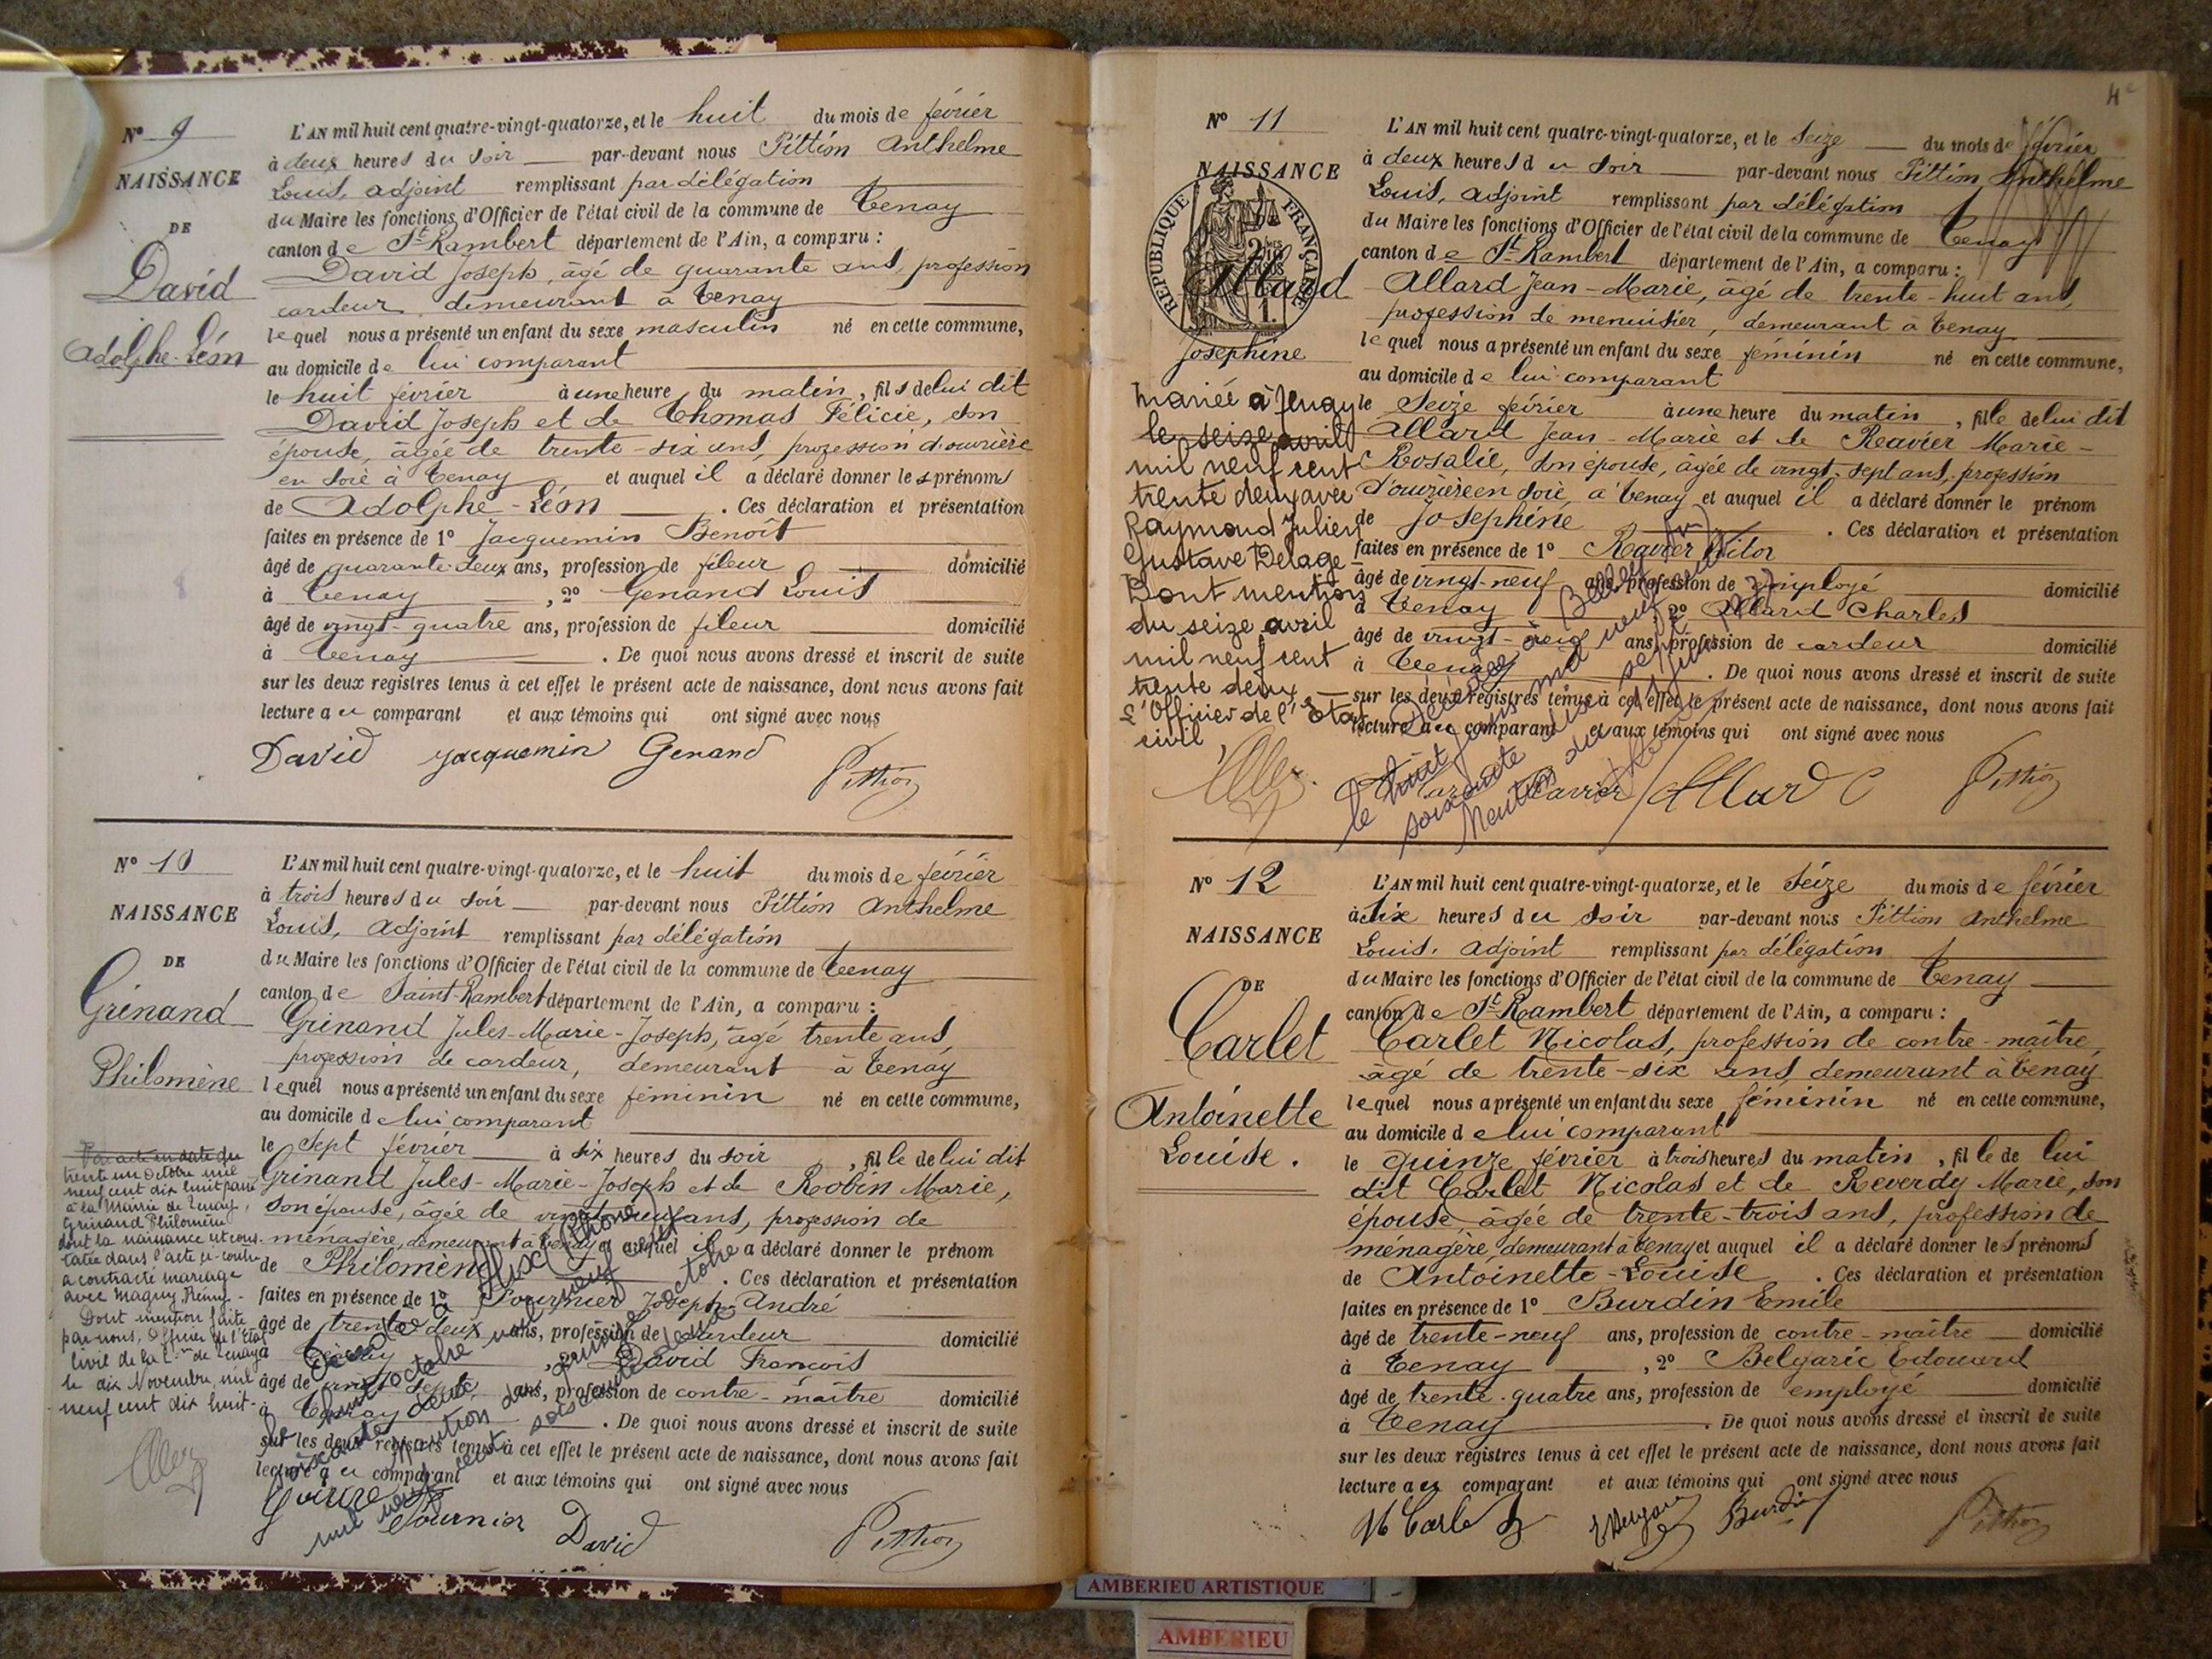 N° 9
NAISSANCE
DE
David
Adolphe-Léon
L'AN mil huit cent quatre-vingt-quatorze, et le huit du mois de février
à deux heures du soir par-devant nous Pittion Anthelme
Louis, adjoint remplissant par délégation
du Maire les fonctions d'Officier de l'état civil de la commune de Tenay
canton de St Rambert département de l'Ain, a comparu :
David Joseph, âgé de quarante ans, profession
cardeur demeurant à Tenay
lequel nous a présenté un enfant du sexe masculin né en cette commune,
au domicile de lui comparant
le huit février à une heure du matin, fils de lui dit
David Joseph et de Thomas Félicie, son
épouse, âgée de trente-six ans, profession d'ouvrière
en soie à Tenay et auquel il a déclaré donner les prénoms
de Adolphe-Léon. Ces déclaration et présentation
faites en présence de 1° Jacquemin Benoît
âgé de quarante-deux ans, profession de fileur domicilié
à Tenay, 2° Genand Louis
âgé de vingt-quatre ans, profession de fileur domicilié
à Tenay. De quoi nous avons dressé et inscrit de suite
sur les deux registres tenus à cet effet le présent acte de naissance, dont nous avons fait
lecture au comparant et aux témoins qui ont signé avec nous
David Jacquemin Genand Pittion
N° 10
NAISSANCE
DE
Grinand
Philomène
L'AN mil huit cent quatre-vingt-quatorze, et le huit du mois de février
à trois heures du soir par-devant nous Pittion Anthelme
Louis, adjoint remplissant par délégation
du Maire les fonctions d'Officier de l'état civil de la commune de Tenay
canton de Saint-Rambert département de l'Ain, a comparu :
Grinand Jules-Marie-Joseph, âgé trente ans,
profession de cardeur, demeurant à Tenay
lequel nous a présenté un enfant du sexe féminin né en cette commune,
au domicile de lui comparant
le sept février à six heures du soir, fille de lui dit
Grinand Jules-Marie-Joseph et de Robin Marie,
son épouse, âgée de vingt-neuf ans, profession de
ménagère, demeurant à Tenay et auquel il a déclaré donner le prénom
de Philomène. Ces déclaration et présentation
faites en présence de 1° Fournier Joseph-André
âgé de trente-deux ans, profession de cardeur domicilié
à Tenay, 2° David François
âgé de vingt-sept ans, profession de contre-maître domicilié
à Tenay. De quoi nous avons dressé et inscrit de suite
sur les deux registres tenus à cet effet le présent acte de naissance, dont nous avons fait
lecture au comparant et aux témoins qui ont signé avec nous
Fournier David Pittion
Par acte en date du
trente un Octobre mil
neuf cent dix huit passé
à la Mairie de Tenay,
Grinand Philomène
dont la naissance est cons-
tatée dans l'acte ci-contre
a contracté mariage
avec Magny Rémy-
Dont mention faite
par nous, Officier de l'Etat
civil de la Cne de Tenay
le dix Novembre mil
neuf cent dix huit.
Décédée à (Rhône)
le huit octobre mil neuf cent
soixante deux
Mention du quinze octobre
mil neuf cent soixante deux
4e
N° 11
NAISSANCE
RÉPUBLIQUE FRANÇAISE
Allard
Josephine
L'AN mil huit cent quatre-vingt-quatorze, et le seize du mois de février
à deux heures du soir par-devant nous Pittion Anthelme
Louis, adjoint remplissant par délégation
du Maire les fonctions d'Officier de l'état civil de la commune de Tenay
canton de St Rambert département de l'Ain, a comparu :
Allard Jean-Marie, âgé de trente-huit ans,
profession de menuisier, demeurant à Tenay
lequel nous a présenté un enfant du sexe féminin né en cette commune,
au domicile de lui comparant
le seize février à une heure du matin, fille de lui dit
Allard Jean-Marie et de Ravier Marie-
Rosalie, son épouse, âgée de vingt-sept ans, profession
d'ouvrière en soie, à Tenay et auquel il a déclaré donner le prénom
de Josephine. Ces déclaration et présentation
faites en présence de 1° Ravier
âgé de vingt-neuf ans, profession de employé domicilié
à Tenay 2° Allard Charles
âgé de vingt- ans, profession de cardeur domicilié
à Tenay. De quoi nous avons dressé et inscrit de suite
sur les deux registres tenus à cet effet le présent acte de naissance, dont nous avons fait
lecture au comparant et aux témoins qui ont signé avec nous
Ravier Allard C Pittion
Mariée à Tenay
le seize avril
mil neuf cent
trente deux avec
Raymond Julien
Gustave Delage
Dont mention
du seize avril
mil neuf cent
trente deux
L'Officier de l'Etat
civil,
Décédée à Belley (Ain)
le huit juin mil neuf cent
soixante
Mention du
N° 12
NAISSANCE
DE
Carlet
Antoinette
Louise.
L'AN mil huit cent quatre-vingt-quatorze, et le seize du mois de février
à six heures du soir par-devant nous Pittion Anthelme
Louis, adjoint remplissant par délégation
du Maire les fonctions d'Officier de l'état civil de la commune de Tenay
canton de St Rambert département de l'Ain, a comparu :
Carlet Nicolas, profession de contre-maître,
âgé de trente-six ans, demeurant à Tenay
lequel nous a présenté un enfant du sexe féminin né en cette commune,
au domicile de lui comparant
le quinze février à trois heures du matin, fille de lui
dit Carlet Nicolas et de Reverdy Marie, son
épouse, âgée de trente-trois ans, profession de
ménagère, demeurant à Tenay et auquel il a déclaré donner les prénoms
de Antoinette-Louise. Ces déclaration et présentation
faites en présence de 1° Burdin Emile
âgé de trente-neuf ans, profession de contre-maître domicilié
à Tenay, 2° Belgaric Edouard
âgé de trente-quatre ans, profession de employé domicilié
à Tenay. De quoi nous avons dressé et inscrit de suite
sur les deux registres tenus à cet effet le présent acte de naissance, dont nous avons fait
lecture au comparant et aux témoins qui ont signé avec nous
N Carlet Burdin Pittion
AMBERIEU ARTISTIQUE
AMBERIEU